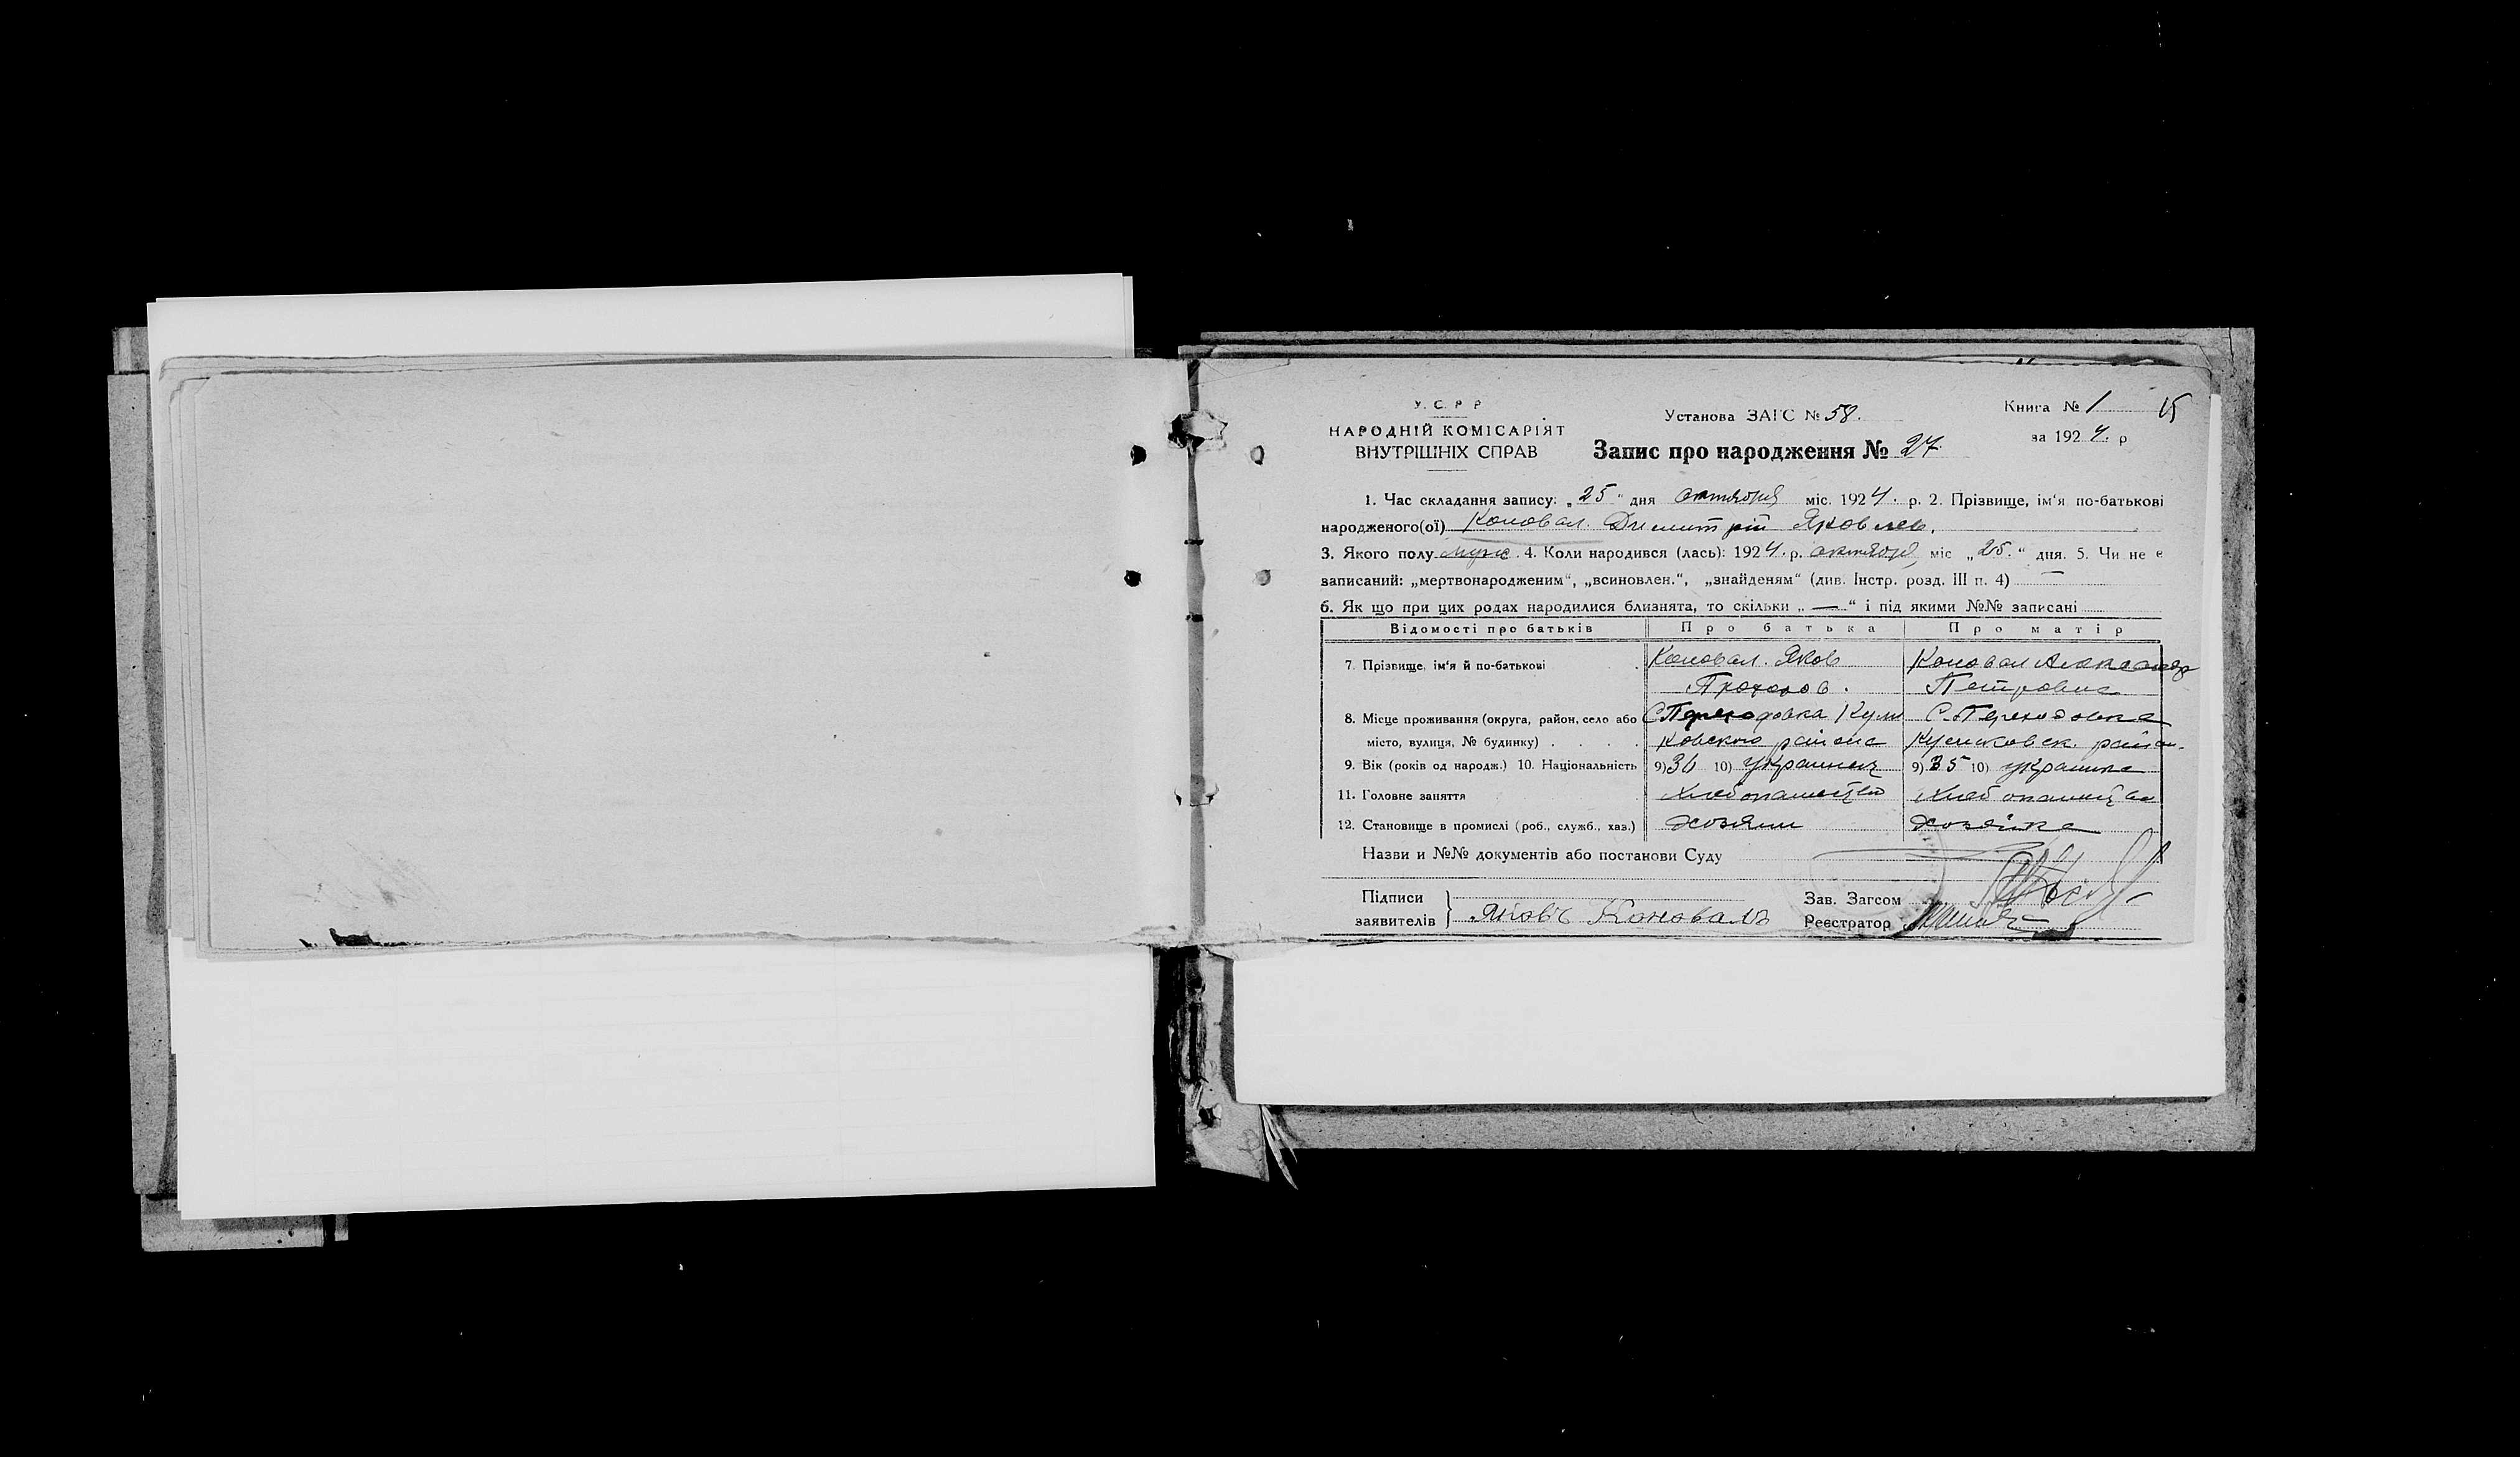 У. С. Р. Р
НАРОДНІЙ КОМІСАРІЯТ
ВНУТРІШНІХ СПРАВ
Установа ЗАГС № 58.
Запис про народження № 27.
Книга № 1 15
за 1924. р
1. Час складання запису: „25“ дня октября міс. 1924. р. 2. Прізвище, ім‘я по-батькові
народженого(ої) Коновал. Димитрій Яковлев.
3. Якого полу муж. 4. Коли народився (лась): 1924. р. октября міс „25.“ дня. 5. Чи не є
записаний: „мертвонародженим“, „всиновлен.“, „знайденям“ (див. Інстр. розд. III п. 4) —
6. Як що при цих родах народилися близнята, то скільки „—“ і під якими №№ записані
Відомості про батьків Про батька Про матір
7. Прізвище, ім‘я й по-батькові Коновал. Яков Коновал Александр
Прохоров. Петровна
8. Місце проживання (округа, район, село або С Переходовка Кули С. Переходовка
місто, вулиця, № будинку) ковского района района
9. Вік (років од народж.) 10. Національність 9) 36 10) Украинец 9) 35 10) украинка
11. Головне заняття Хлебопашество Хлебопашество
12. Становище в промислі (роб., служб., хаз.) хозяин хозяйка
Назви и №№ документів або постанови Суду
Підписи
заявителів Яковъ Коновалъ
Зав. Загсом
Реєстратор